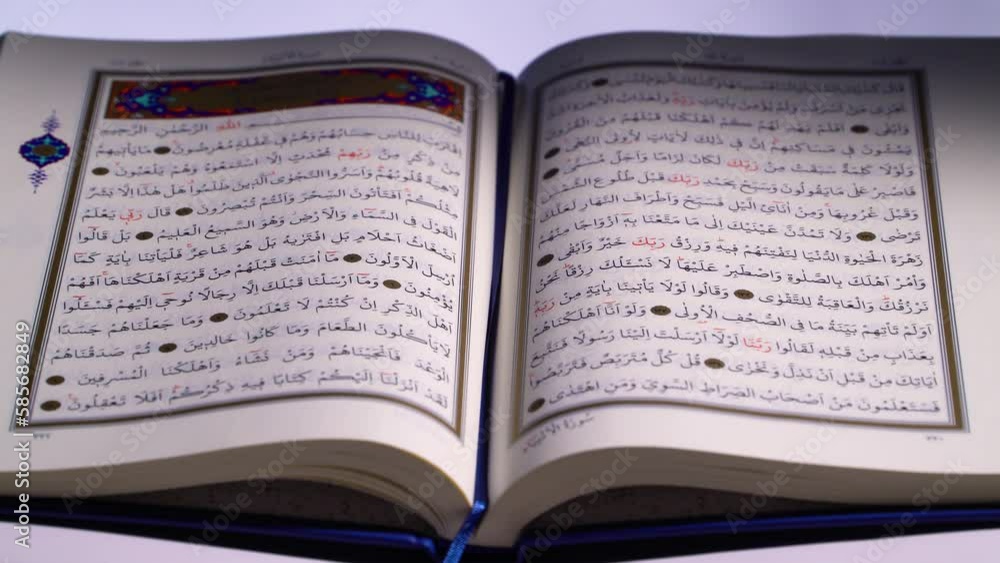 قَالَ كَذٰلِكَ اَتَتْكَ اٰيَاتُنَا فَنَسِيتَهَا وَكَذٰلِكَ الْيَوْمَ تُنْسٰى وَكَذٰلِكَ
نَجْزِي مَنْ اَسْرَفَ وَلَمْ يُؤْمِنْ بِاٰيَاتِ رَبِّهِ وَلَعَذَابُ الْاٰخِرَةِ اَشَدُّ
وَاَبْقٰى اَفَلَمْ يَهْدِ لَهُمْ كَمْ اَهْلَكْنَا قَبْلَهُمْ مِنَ الْقُرُونِ
يَمْشُونَ فِي مَسَاكِنِهِمْ اِنَّ فِي ذٰلِكَ لَاٰيَاتٍ لِاُولِي النُّهٰى
وَلَوْلَا كَلِمَةٌ سَبَقَتْ مِنْ رَبِّكَ لَكَانَ لِزَامًا وَاَجَلٌ مُسَمًّى
فَاصْبِرْ عَلٰى مَا يَقُولُونَ وَسَبِّحْ بِحَمْدِ رَبِّكَ قَبْلَ طُلُوعِ الشَّمْسِ
وَقَبْلَ غُرُوبِهَا وَمِنْ اٰنَآئِ الَّيْلِ فَسَبِّحْ وَاَطْرَافَ النَّهَارِ لَعَلَّكَ
تَرْضٰى وَلَا تَمُدَّنَّ عَيْنَيْكَ اِلٰى مَا مَتَّعْنَا بِهِ اَزْوَاجًا مِنْهُمْ
زَهْرَةَ الْحَيٰوةِ الدُّنْيَا لِنَفْتِنَهُمْ فِيهِ وَرِزْقُ رَبِّكَ خَيْرٌ وَاَبْقٰى
وَأْمُرْ اَهْلَكَ بِالصَّلٰوةِ وَاصْطَبِرْ عَلَيْهَا لَا نَسْئَلُكَ رِزْقًا نَحْنُ
نَرْزُقُكَ وَالْعَاقِبَةُ لِلتَّقْوٰى وَقَالُوا لَوْلَا يَأْتِينَا بِاٰيَةٍ مِنْ رَبِّهِ
اَوَلَمْ تَأْتِهِمْ بَيِّنَةُ مَا فِي الصُّحُفِ الْاُولٰى وَلَوْ اَنَّا اَهْلَكْنَاهُمْ
بِعَذَابٍ مِنْ قَبْلِهِ لَقَالُوا رَبَّنَا لَوْلَا اَرْسَلْتَ اِلَيْنَا رَسُولًا فَنَتَّبِعَ
اٰيَاتِكَ مِنْ قَبْلِ اَنْ نَذِلَّ وَنَخْزٰى قُلْ كُلٌّ مُتَرَبِّصٌ فَتَرَبَّصُوا
فَسَتَعْلَمُونَ مَنْ اَصْحَابُ الصِّرَاطِ السَّوِيِّ وَمَنِ اهْتَدٰى
سُورَةُ الْاَنْبِيَاءِ
اللّٰهِ الرَّحْمٰنِ الرَّحِيمِ
اِقْتَرَبَ لِلنَّاسِ حِسَابُهُمْ وَهُمْ فِي غَفْلَةٍ مُعْرِضُونَ مَا يَأْتِيهِمْ
مِنْ ذِكْرٍ مِنْ رَبِّهِمْ مُحْدَثٍ اِلَّا اسْتَمَعُوهُ وَهُمْ يَلْعَبُونَ
لَاهِيَةً قُلُوبُهُمْ وَاَسَرُّوا النَّجْوٰى الَّذِينَ ظَلَمُوا هَلْ هٰذَا اِلَّا بَشَرٌ
مِثْلُكُمْ اَفَتَأْتُونَ السِّحْرَ وَاَنْتُمْ تُبْصِرُونَ قَالَ رَبِّي يَعْلَمُ
الْقَوْلَ فِي السَّمَاءِ وَالْاَرْضِ وَهُوَ السَّمِيعُ الْعَلِيمُ بَلْ قَالُوا
اَضْغَاثُ اَحْلَامٍ بَلِ افْتَرٰيهُ بَلْ هُوَ شَاعِرٌ فَلْيَأْتِنَا بِاٰيَةٍ كَمَا
اُرْسِلَ الْاَوَّلُونَ مَا اٰمَنَتْ قَبْلَهُمْ مِنْ قَرْيَةٍ اَهْلَكْنَاهَا اَفَهُمْ
يُؤْمِنُونَ وَمَا اَرْسَلْنَا قَبْلَكَ اِلَّا رِجَالًا نُوحِي اِلَيْهِمْ فَسْئَلُوا
اَهْلَ الذِّكْرِ اِنْ كُنْتُمْ لَا تَعْلَمُونَ وَمَا جَعَلْنَاهُمْ جَسَدًا
لَا يَأْكُلُونَ الطَّعَامَ وَمَا كَانُوا خَالِدِينَ ثُمَّ صَدَقْنَاهُمُ
الْوَعْدَ فَاَنْجَيْنَاهُمْ وَمَنْ نَشَاءُ وَاَهْلَكْنَا الْمُسْرِفِينَ
لَقَدْ اَنْزَلْنَا اِلَيْكُمْ كِتَابًا فِيهِ ذِكْرُكُمْ اَفَلَا تَعْقِلُونَ
Adobe Stock | #585682849